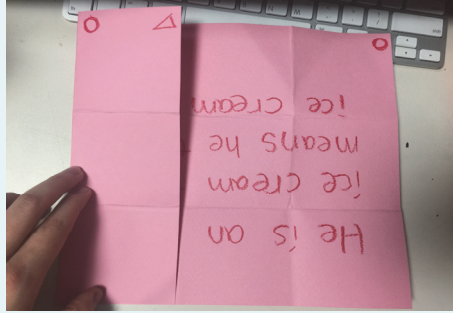 He is an
ice cream
means he
ice cream